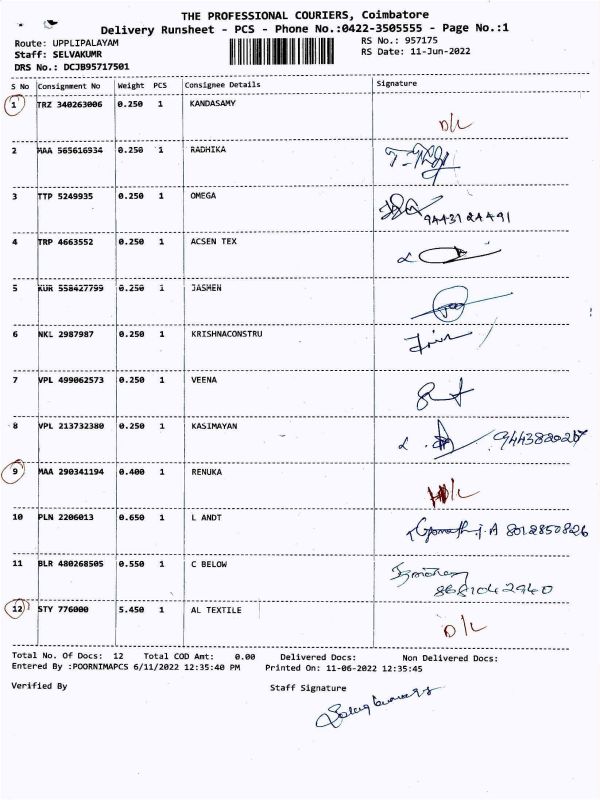 THE PROFESSIONAL COURIERS, Coimbatore
Delivery Runsheet - PCS - Phone No.:0422-3505555 - Page No.:1
Route: UPPLIPALAYAM RS No.: 957175
Staff: SELVAKUMR RS Date: 11-Jun-2022
DRS No.: DCJB95717501
S No Consignment No Weight PCS Consignee Details Signature
1 TRZ 340263006 0.250 1 KANDASAMY
D/L
2 MAA 565616934 0.250 1 RADHIKA
3 TTP 5249935 0.250 1 OMEGA
9443124491
4 TRP 4663552 0.250 1 ACSEN TEX
5 KUR 558427799 0.250 1 JASMEN
6 NKL 2987987 0.250 1 KRISHNACONSTRU
7 VPL 499062573 0.250 1 VEENA
8 VPL 213732380 0.250 1 KASIMAYAN
9 MAA 290341194 0.400 1 RENUKA
D/L
10 PLN 2206013 0.650 1 L ANDT
8012850826
11 BLR 480268505 0.550 1 C BELOW
8681042940
12 STY 776000 5.450 1 AL TEXTILE
D/L
Total No. Of Docs: 12 Total COD Amt: 0.00 Delivered Docs: Non Delivered Docs:
Entered By :POORNIMAPCS 6/11/2022 12:35:40 PM Printed On: 11-06-2022 12:35:45
Verified By Staff Signature